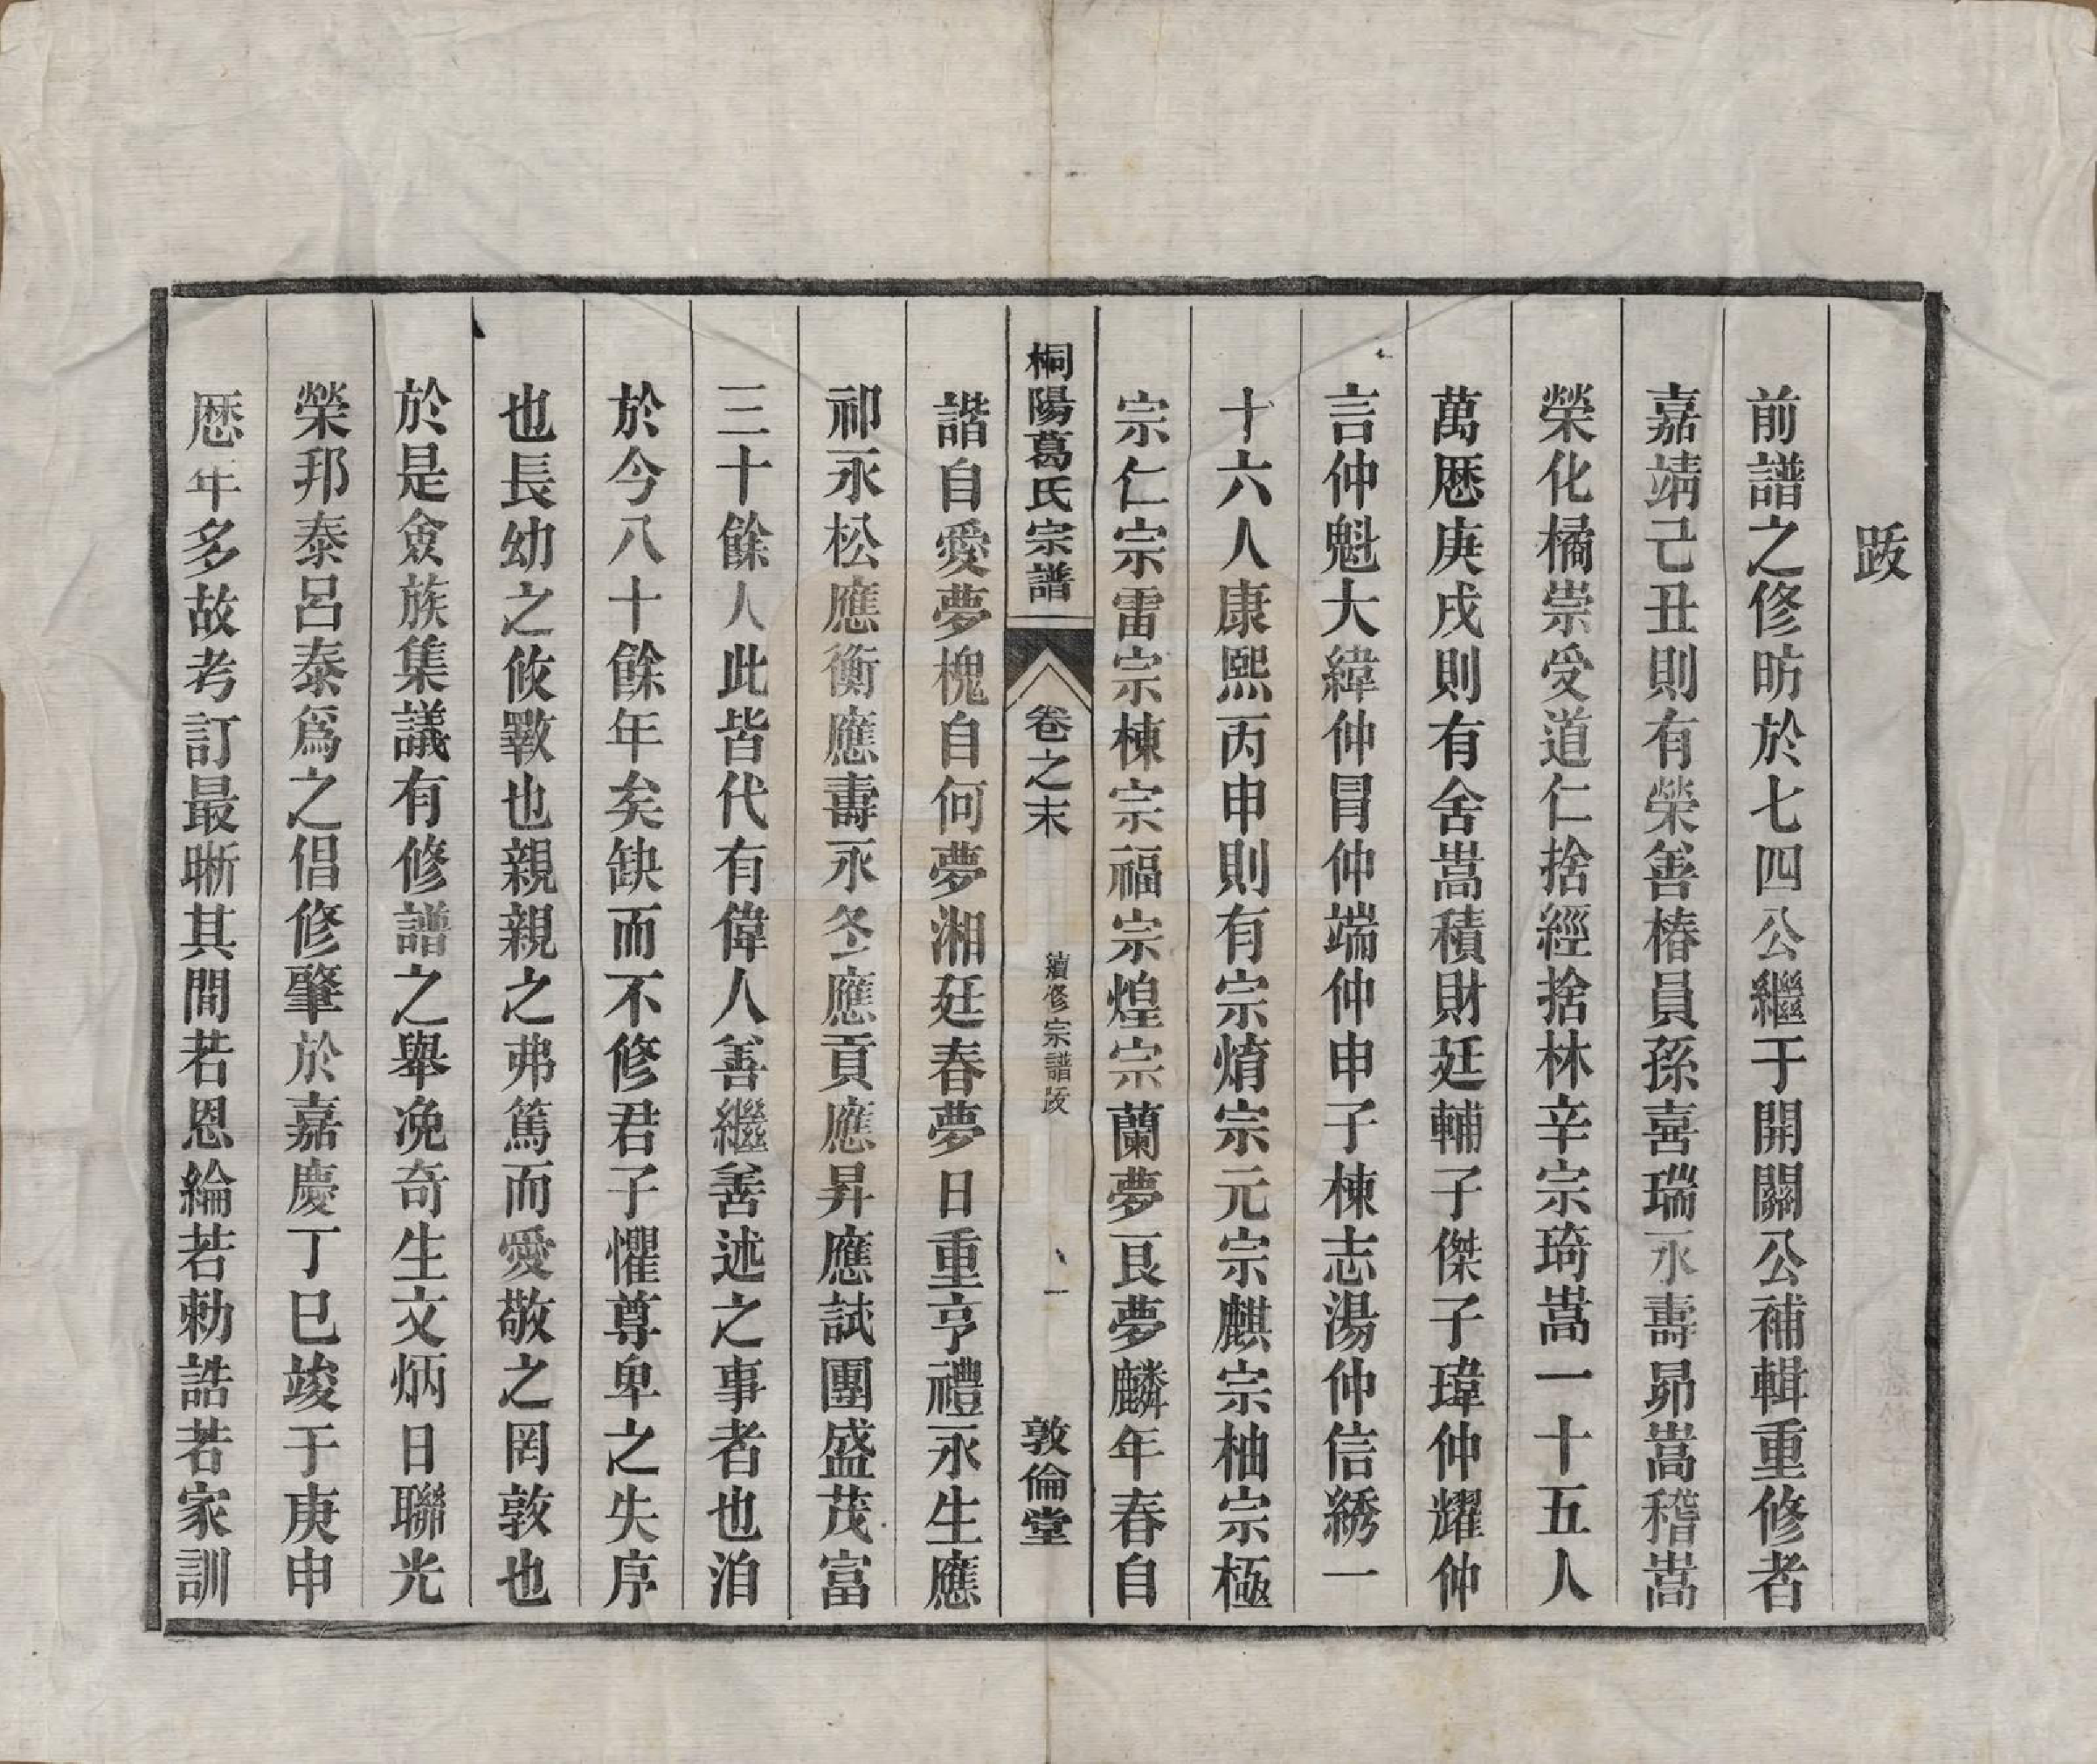 跋
前譜之修昉於七四公繼于開關公補輯重修者
嘉靖己丑則有榮善椿員孫喜瑞永壽昴嵩稽嵩
榮化橘崇受道仁捨經捨林辛宗琦嵩一十五人
萬厯庚戌則有舍嵩積財廷輔子傑子瑋仲耀仲
言仲魁大緯仲冒仲端仲申子棟志湯仲信綉一
十六人康熙丙申則有宗焴宗元宗麒宗柚宗極
宗仁宗雷宗棟宗福宗煌宗蘭夢艮夢麟年春自
桐陽葛氏宗譜 卷之末 續修宗譜跋 一 敦倫堂
諧自愛夢槐自何夢湘廷春夢日重亨禮永生應
祁永松應衡應壽永冬應貢應昇應試團盛茂富
三十餘人此皆代有偉人善繼善述之事者也洎
於今八十餘年矣缺而不修君子懼尊卑之失序
也長幼之攸斁也親親之弗篤而愛敬之罔敦也
於是僉族集議有修譜之舉浼奇生文炳日聯光
榮邦泰呂泰爲之倡修肇於嘉慶丁巳竣于庚申
厯年多故考訂最晰其間若恩綸若勅誥若家訓